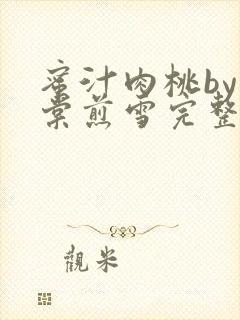 蜜汁肉桃by
棠煎雪完整
觀米